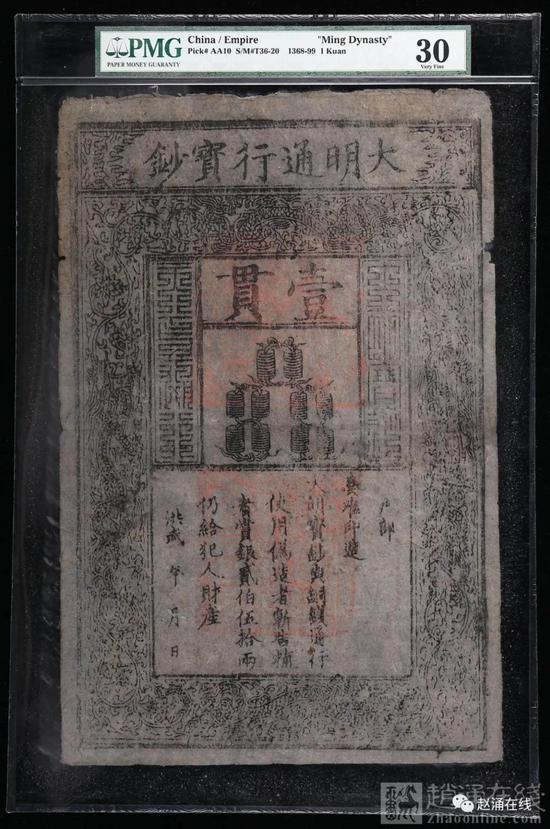 PMG
PAPER MONEY GUARANTY
China / Empire "Ming Dynasty"
Pick# AA10 S/M#T36-20 1368-99 1 Kuan
30
Very Fine
大明通行寶鈔
壹貫
戶部
奏准印造
大明寶鈔與銅錢通行
使用偽造者斬告捕
者賞銀貳伯伍拾兩
仍給犯人財產
洪武 年 月 日
赵涌在線
zhaoonline.com
赵涌在线